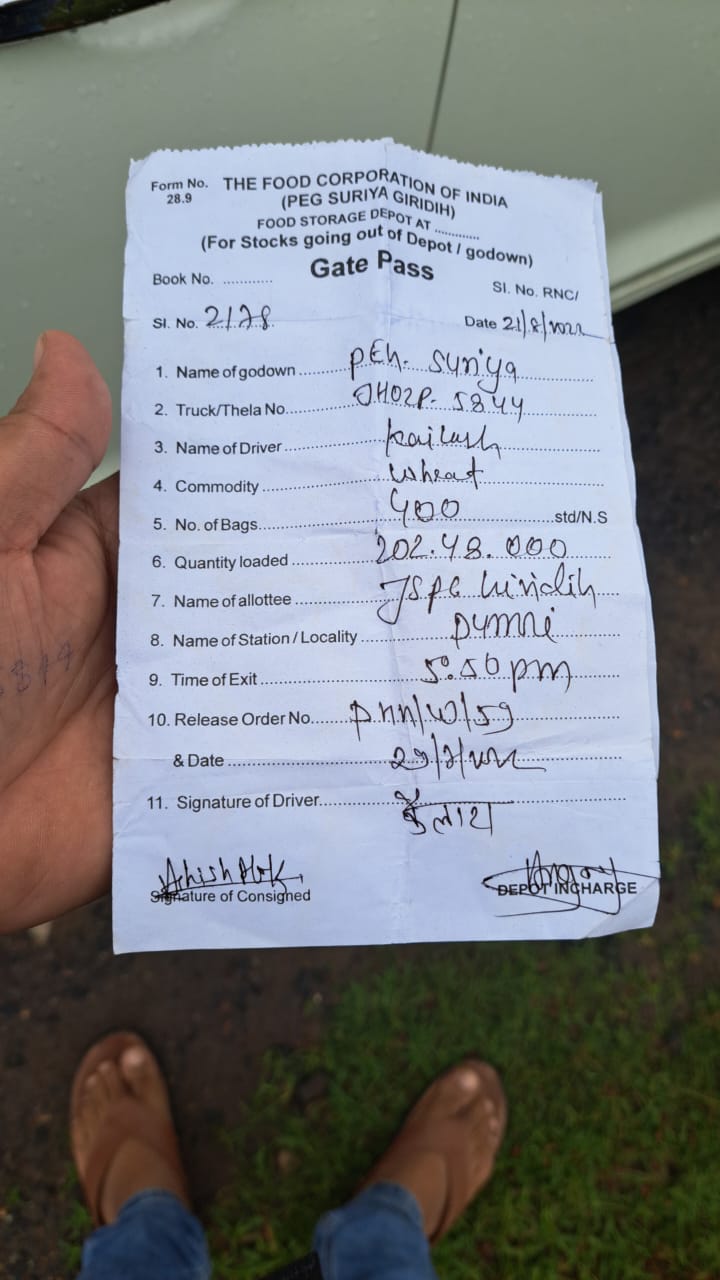 Form No. THE FOOD CORPORATION OF INDIA
28.9 (PEG SURIYA GIRIDIH)
FOOD STORAGE DEPOT AT ............
(For Stocks going out of Depot / godown)
Book No. ............ Gate Pass
SI. No. RNC/
SI. No. 2178 Date 21/8/2022
1. Name of godown PEG. Suriya
2. Truck/Thela No. JH02P. 5844
3. Name of Driver Kailash
4. Commodity Wheat
5. No. of Bags 400 std/N.S
6. Quantity loaded 202.48.000
7. Name of allottee
8. Name of Station / Locality Dumri
9. Time of Exit 5:50 pm
10. Release Order No.
& Date
11. Signature of Driver
Ashish
Signature of Consigned DEPOT INCHARGE